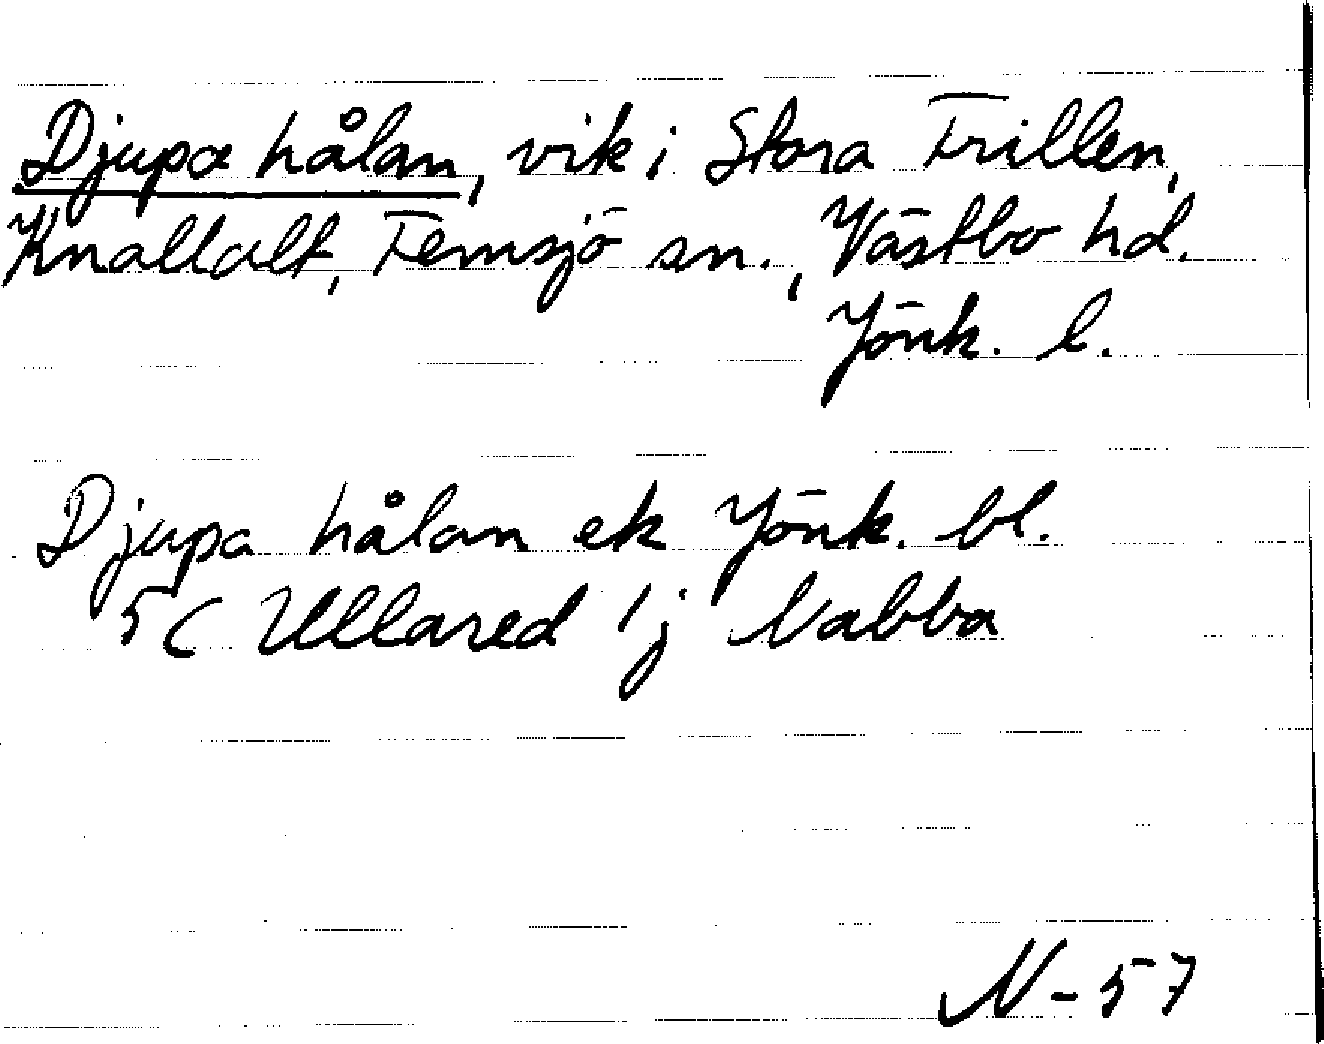 Djupa hålan, vik i Stora Frillen,
Knallalt, Femsjö sn., Västbo hd.
Jönk. l.
Djupa hålan ek Jönk. bl.
5 C Ullared 1j Nabba
N-57